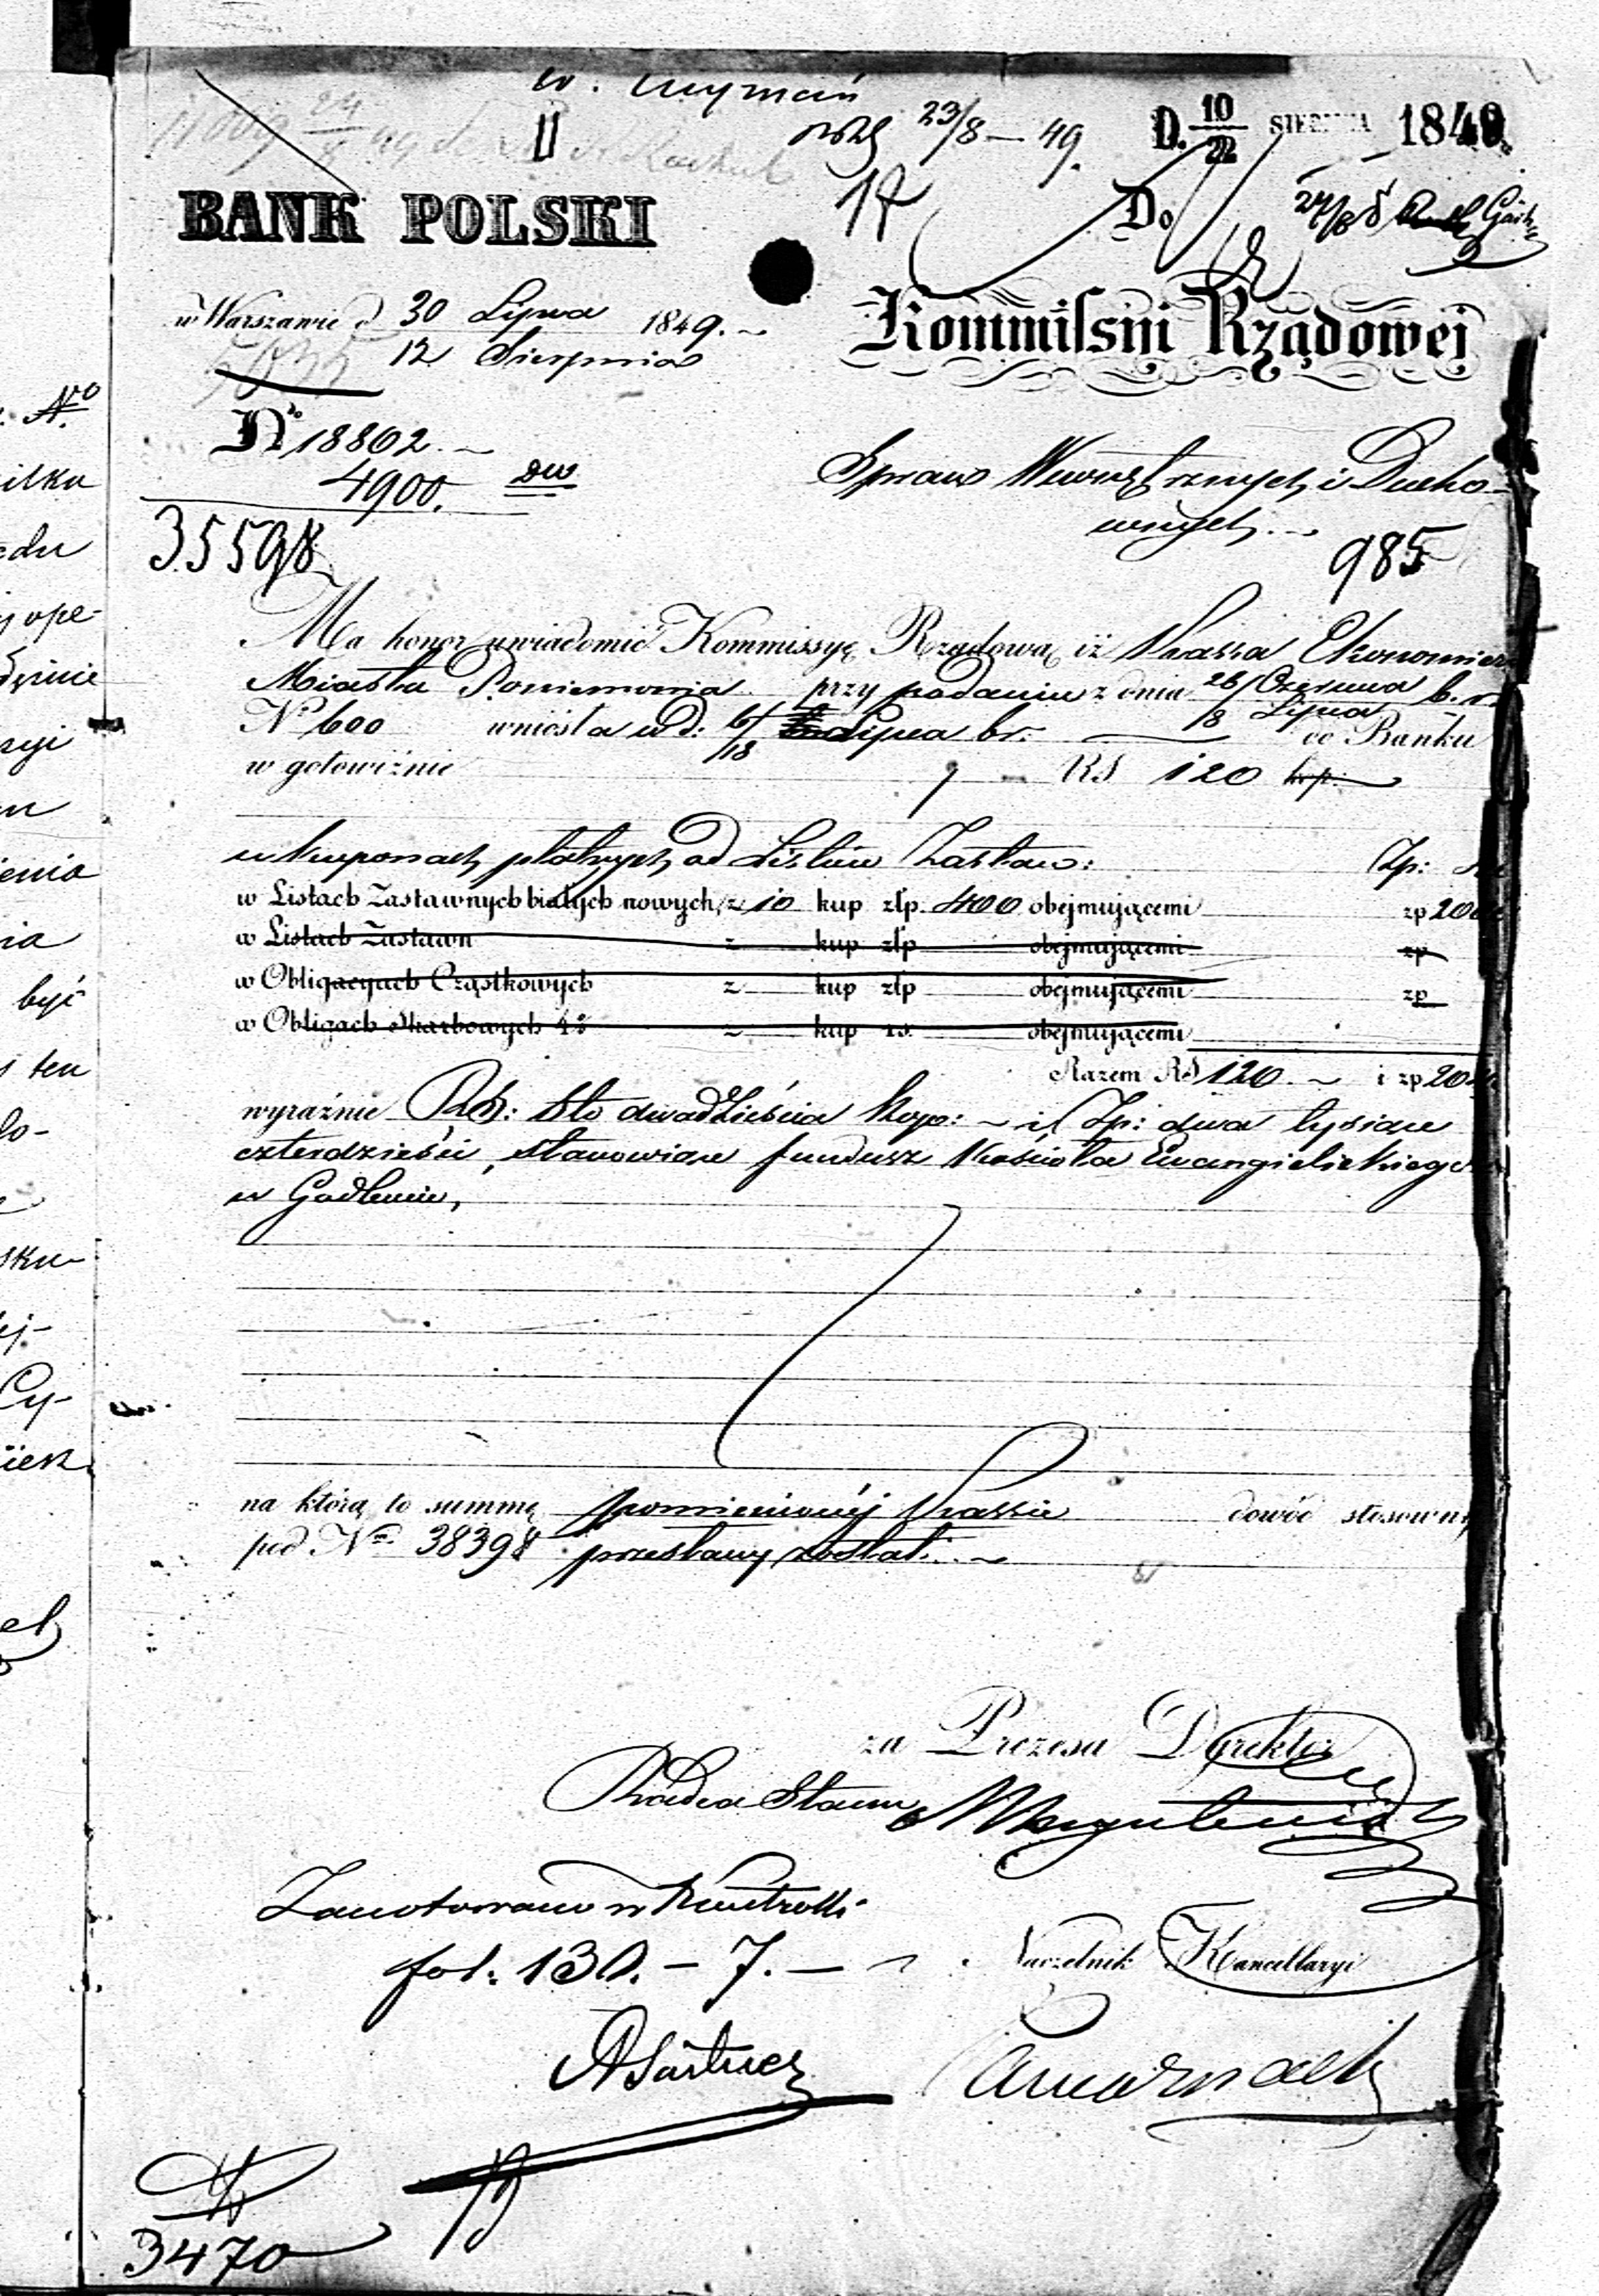 II
23/8 — 49.
D. 10/22 SIERPNIA 1849.
17
Do
BANK POLSKI
Kommissyi Rządowej
w Warszawie d 30 Lipca 1849. ~
12 Sierpnia
No 18802. ~
4900. dw
35598
Spraw Wewnętrznych i Ducho-
wnych. ~
985
Ma honor uwiadomić Kommissyę Rządową iż Kassa Ekonomiczn
Miasta Poniemonia przy podaniu z dnia 26/8 Czerwca/Lipca b. r.
No 600 wniosła w d: 6/18 Lipca br. do Banku
w gotowiźnie RS 120 kp.
w kuponach płatnych od Listów Zastaw: Zp:
w Listach Zastawnych białych nowych z 10 kup złp. 400 obejmującemi zp 200
w Listach Zastawn z kup złp obejmującemi zp
w Obligacyach Cząstkowych z kup złp obejmującemi zp
w Obligach Skarbowych 4% z kup rs. obejmującemi
Razem RS 120. ~ i zp 204
wyraźnie Rs: sto dwadzieścia kop: ~ i Zp: dwa tysiące
czterdzieści, stanowiące fundusz Kościoła Ewangielickiego
w Godlewie,
na którą to summę pomienionéj Kassie dowód stosowny
pod Nm 38398 przesłany został. ~
za Prezesa Dyrektor
Radca Stanu
Zanotowano w Kontrolli
fol: 130. — 7. —
Naczelnik Kancellaryi
3470